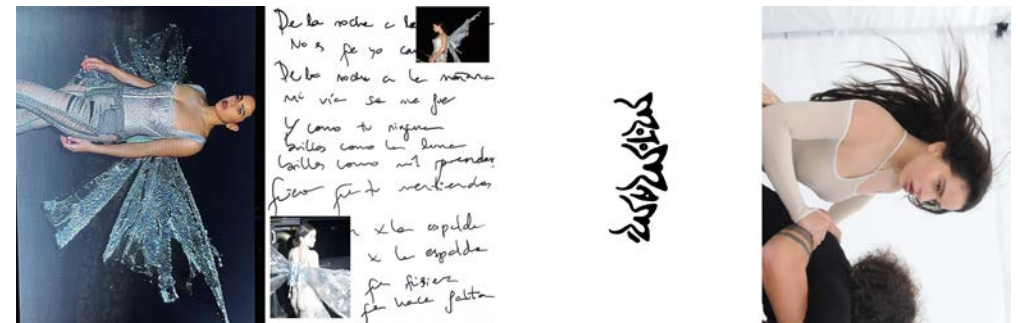 De la noche a la
No es que yo
De la noche a la mañana
Mi vía se me fue
Y como tu ninguna
brillas como la luna
brillas como mil prendas
que tu mentiendas
x la espalda
x la espalda
que
que hace falta